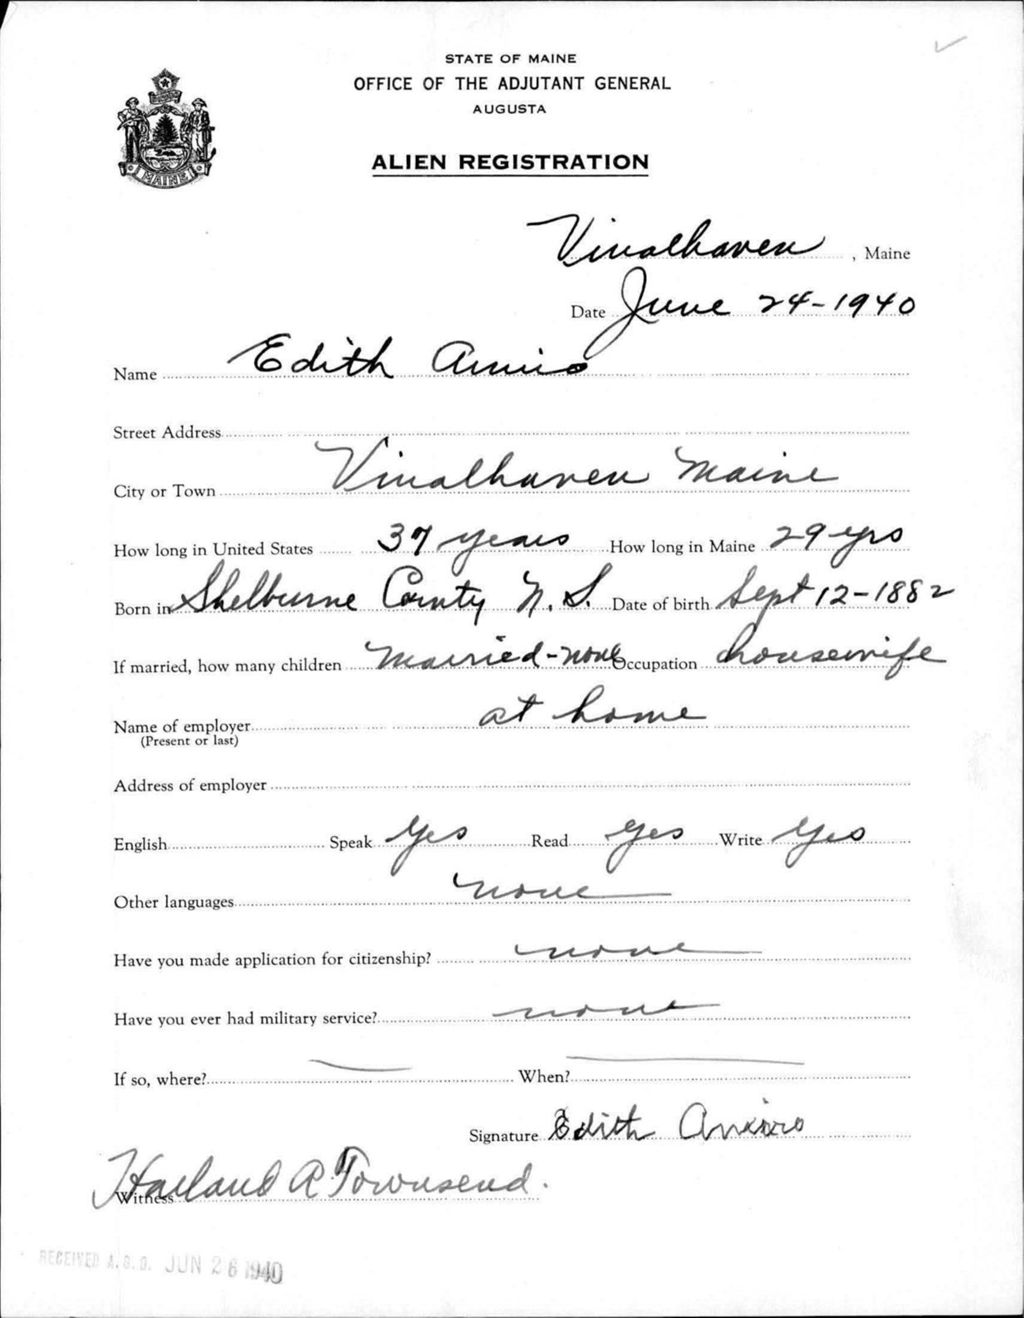 STATE OF MAINE
OFFICE OF THE ADJUTANT GENERAL
AUGUSTA
ALIEN REGISTRATION
MAINE
Vinalhaven, Maine
Date June 24-1940
Name Edith
Street Address
City or Town Vinalhaven Maine
How long in United States 37 years How long in Maine 29 yrs
Born in Shelburne County N. S. Date of birth Sept 12-1882
If married, how many children Married-none Occupation housewife
Name of employer at home
(Present or last)
Address of employer
English Speak Yes Read yes Write Yes
Other languages none
Have you made application for citizenship? none
Have you ever had military service? none
If so, where? When?
Signature Edith
Witness Harland R Townsend.
RECEIVED A.G.O. JUN 26 1940